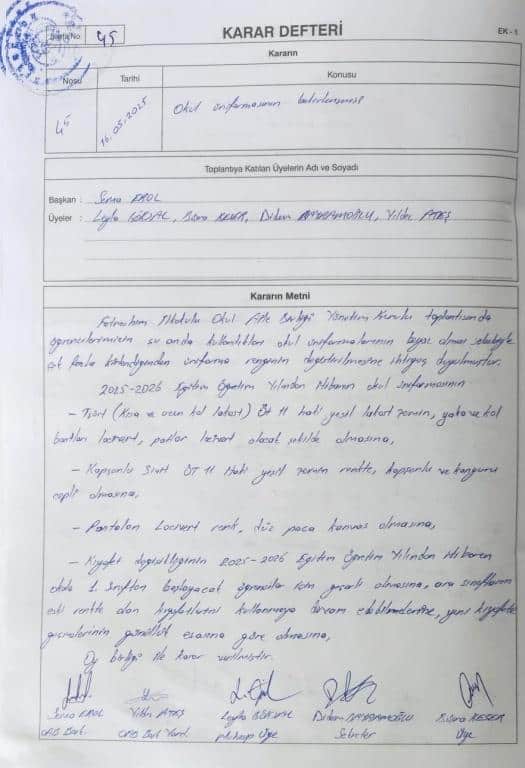 Sayfa No 45
KARAR DEFTERİ
EK - 1
Kararın
Nosu
Tarihi
Konusu
45
16.05.2025
Okul üniformasının belirlenmesi
Toplantıya Katılan Üyelerin Adı ve Soyadı
Başkan : Sema EROL
Üyeler : Leyla GÖKSAL, Büşra KESER, Didem BAYRAMOĞLU, Yıldız ATEŞ
Kararın Metni
İlkokulu Okul Aile Birliği Yönetim Kurulu toplantısında
öğrencilerimizin şu anda kullandıkları okul üniformalarının beyaz olması sebebiyle
çok fazla kirlendiğinden üniforma renginin değiştirilmesine ihtiyaç duyulmuştur.
2025-2026 Eğitim Öğretim Yılından itibaren okul üniformasının
- Tişört (Kısa ve uzun kol lakost) ÖT 11 haki yeşil lakost zemin, yaka ve kol
bantları lacivert, patlar lacivert olacak şekilde olmasına,
- Kapşonlu Swit ÖT 11 Haki yeşil zemin renkte, kapşonlu ve kanguru
cepli olmasına,
- Pantolon Lacivert renk, düz paça kanvas olmasına,
- Kıyafet değişikliğinin 2025-2026 Eğitim Öğretim Yılından itibaren
okula 1. Sınıftan başlayacak öğrenciler için geçerli olmasına, ara sınıfların
eski renkte olan kıyafetlerini kullanmaya devam edebilmelerine, yeni kıyafete
geçmelerinin gönüllük esasına göre olmasına,
Oy birliği ile karar verilmiştir.
Sema EROL
Yıldız ATEŞ
Leyla GÖKSAL
Didem BAYRAMOĞLU
Büşra KESER
OAB Başk.
OAB Başk Yard.
Üye
Sekreter
Üye